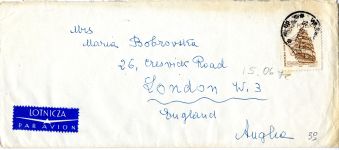 Mrs
Maria Bobrovska
26, Creswick Road
15.06
London W.3
England
LOTNICZA
PAR AVION
Anglia